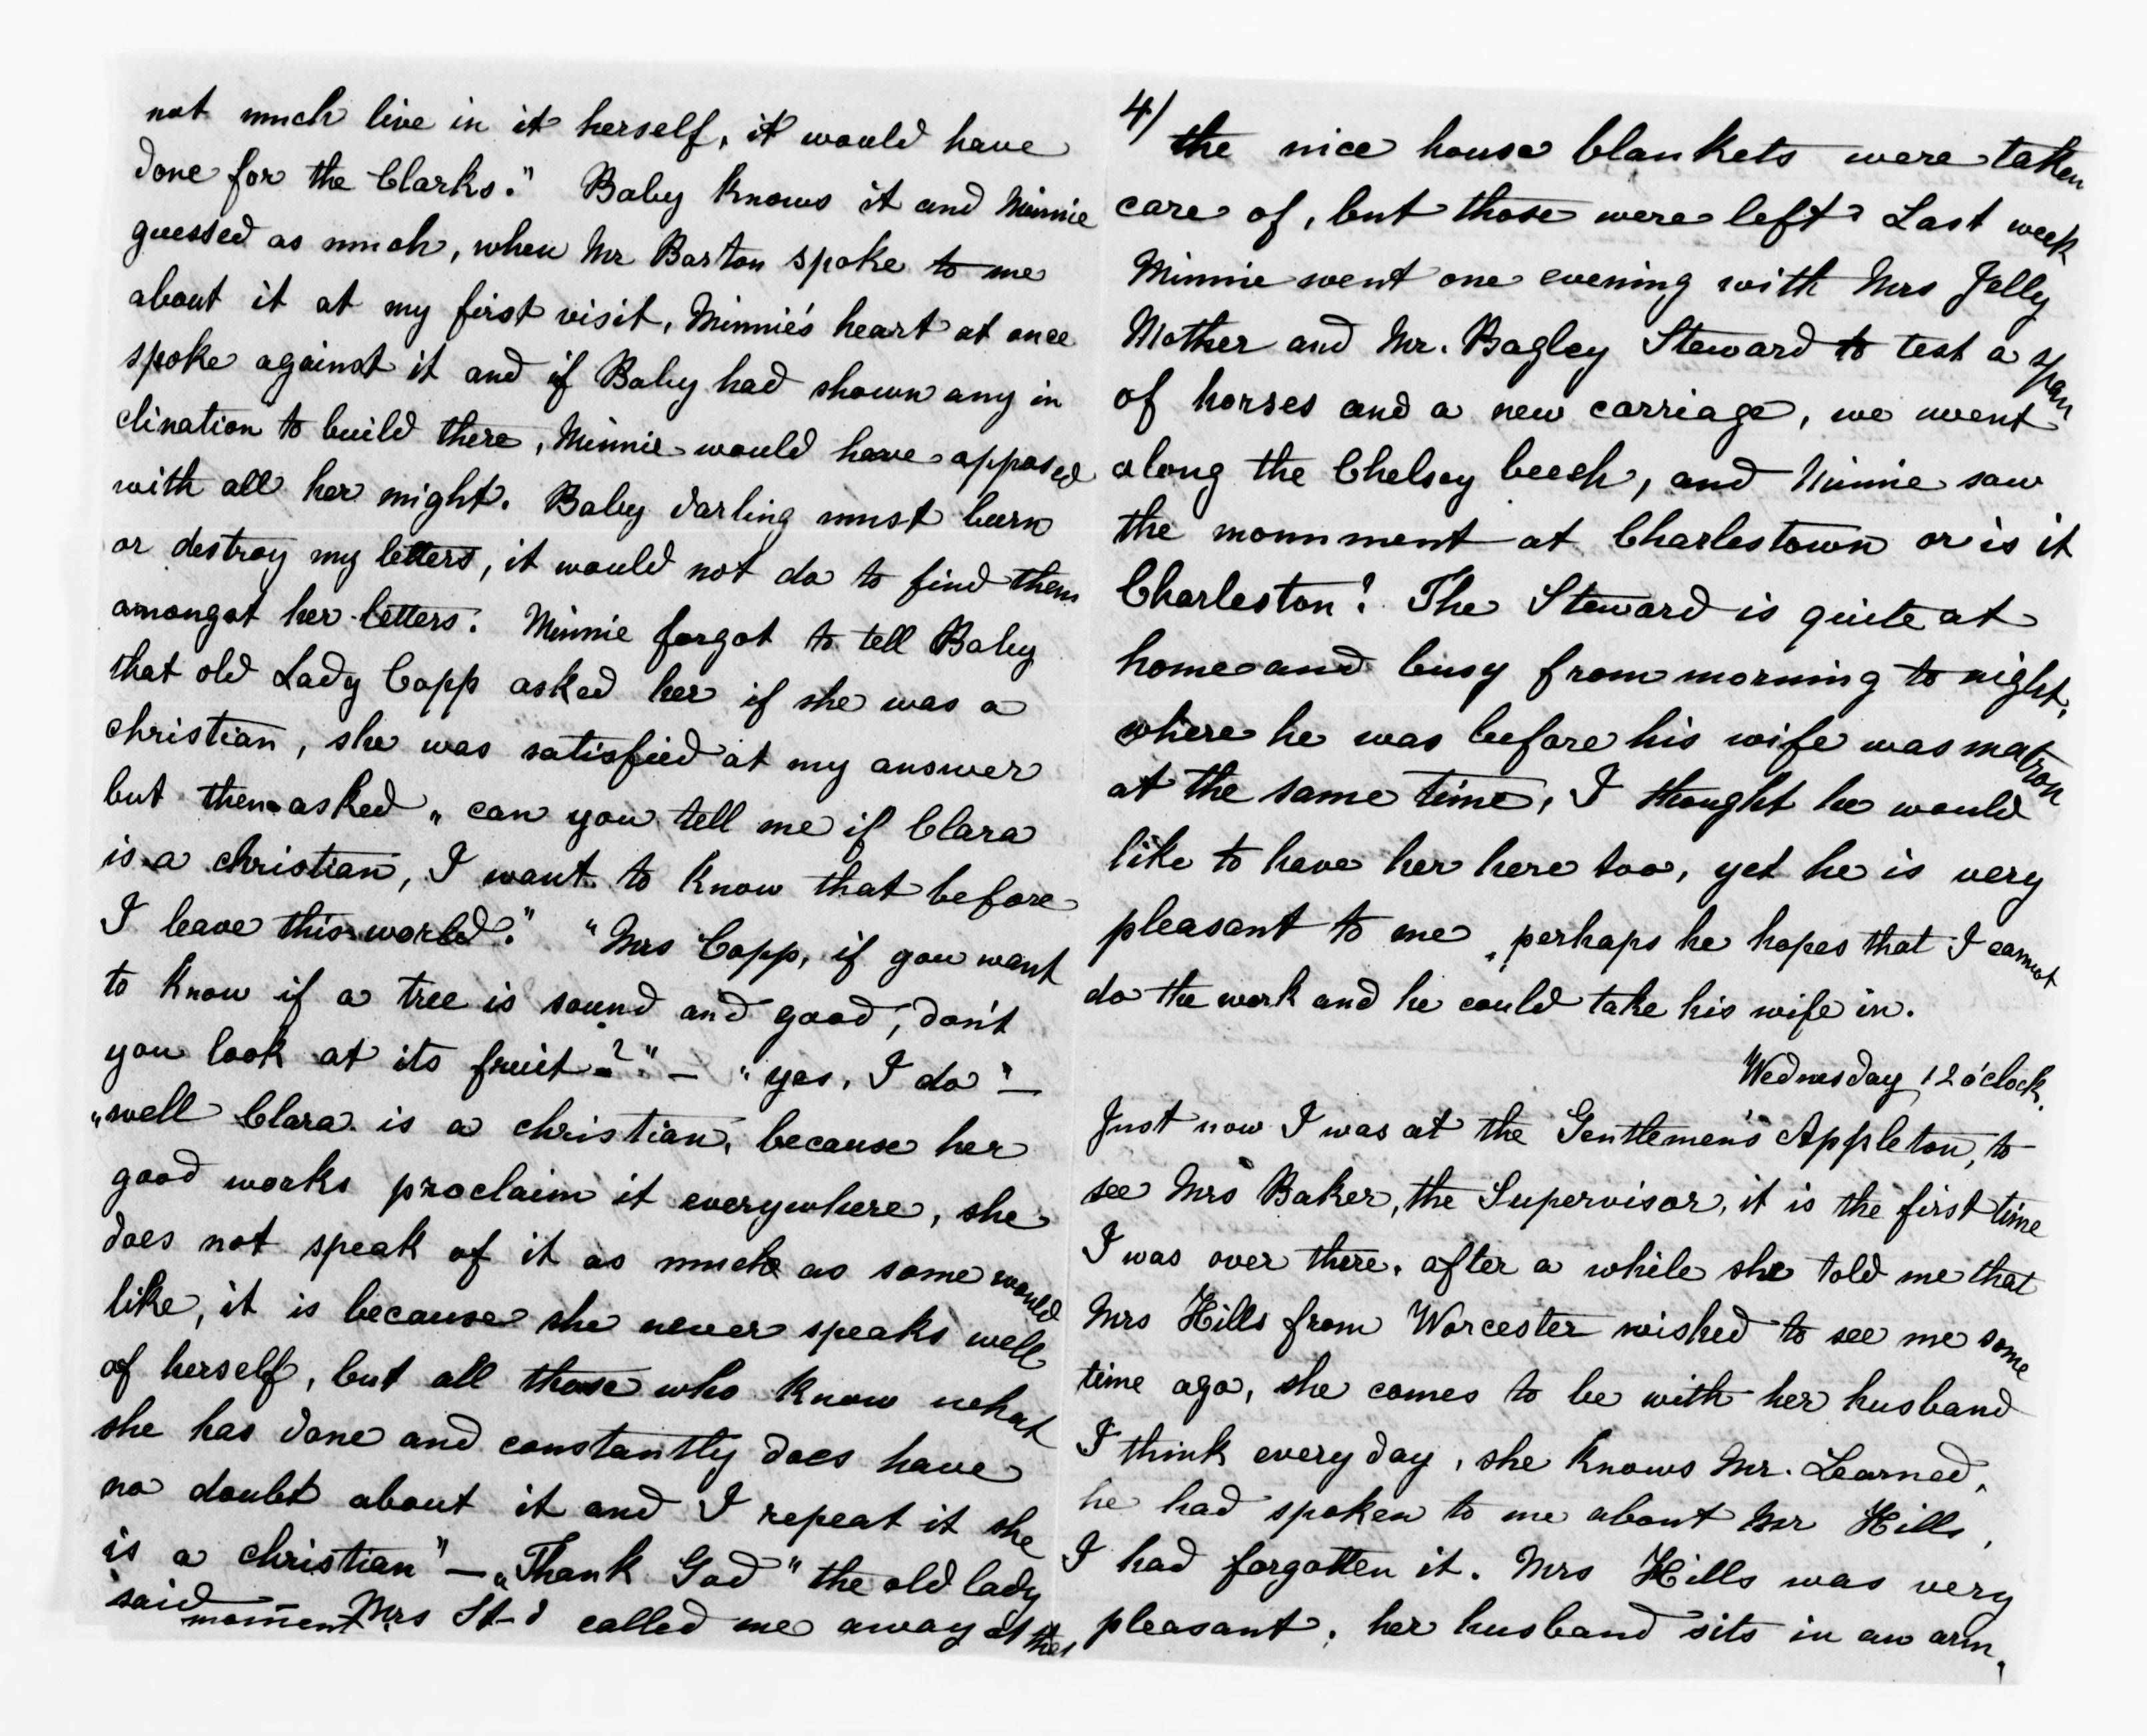 not much live in it herself, it would have
done for the Clarks." Baby knows it and Minnie
guessed as much, when Mr Barton spoke to me
about it at my first visit, Minnie's heart at once
spoke against it and if Baby had shown any in
clination to build there, Minnie would have opposed
with all her might. Baby darling must burn
or destroy my letters, it would not do to find them
amongst her letters. Minnie forgot to tell Baby
that old Lady Copp asked her if she was a
christian, she was satisfied at my answer
but then asked „ can you tell me if Clara
is a christian, I want to know that before
I leave this world." "Mrs Copp, if you want
to know if a tree is sound and good, don't
you look at its fruit?" — "yes, I do" —
„well Clara is a christian, because her
good works proclaim it everywhere, she
does not speak of it as much as some would
like, it is because she never speaks well
of herself, but all those who know what
she has done and constantly does have
no doubt about it and I repeat it she
is a christian" — „Thank God" the old lady
said — Mrs St—d called me away at that
moment.
4/
the nice house blankets were taken
care of, but those were left. Last week
Minnie went one evening with Mrs Jelly
Mother and Mr. Bagley Steward to test a span
of horses and a new carriage, we went
along the Chelsey beech, and Minnie saw
the monument at Charlestown or is it
Charleston? The Steward is quite at
home and busy from morning to night,
where he was before his wife was matron
at the same time, I thought he would
like to have her here too, yet he is very
pleasant to me, perhaps he hopes that I cannot
do the work and he could take his wife in.
Wednesday 12 o'clock.
Just now I was at the Gentlemen's Appleton, to
see Mrs Baker, the Supervisor, it is the first time
I was over there, after a while she told me that
Mrs Hills from Worcester wished to see me some
time ago, she comes to be with her husband
I think every day, she knows Mr. Learned,
he had spoken to me about Mr Hills,
I had forgotten it. Mrs Hills was very
pleasant, her husband sits in an arm,